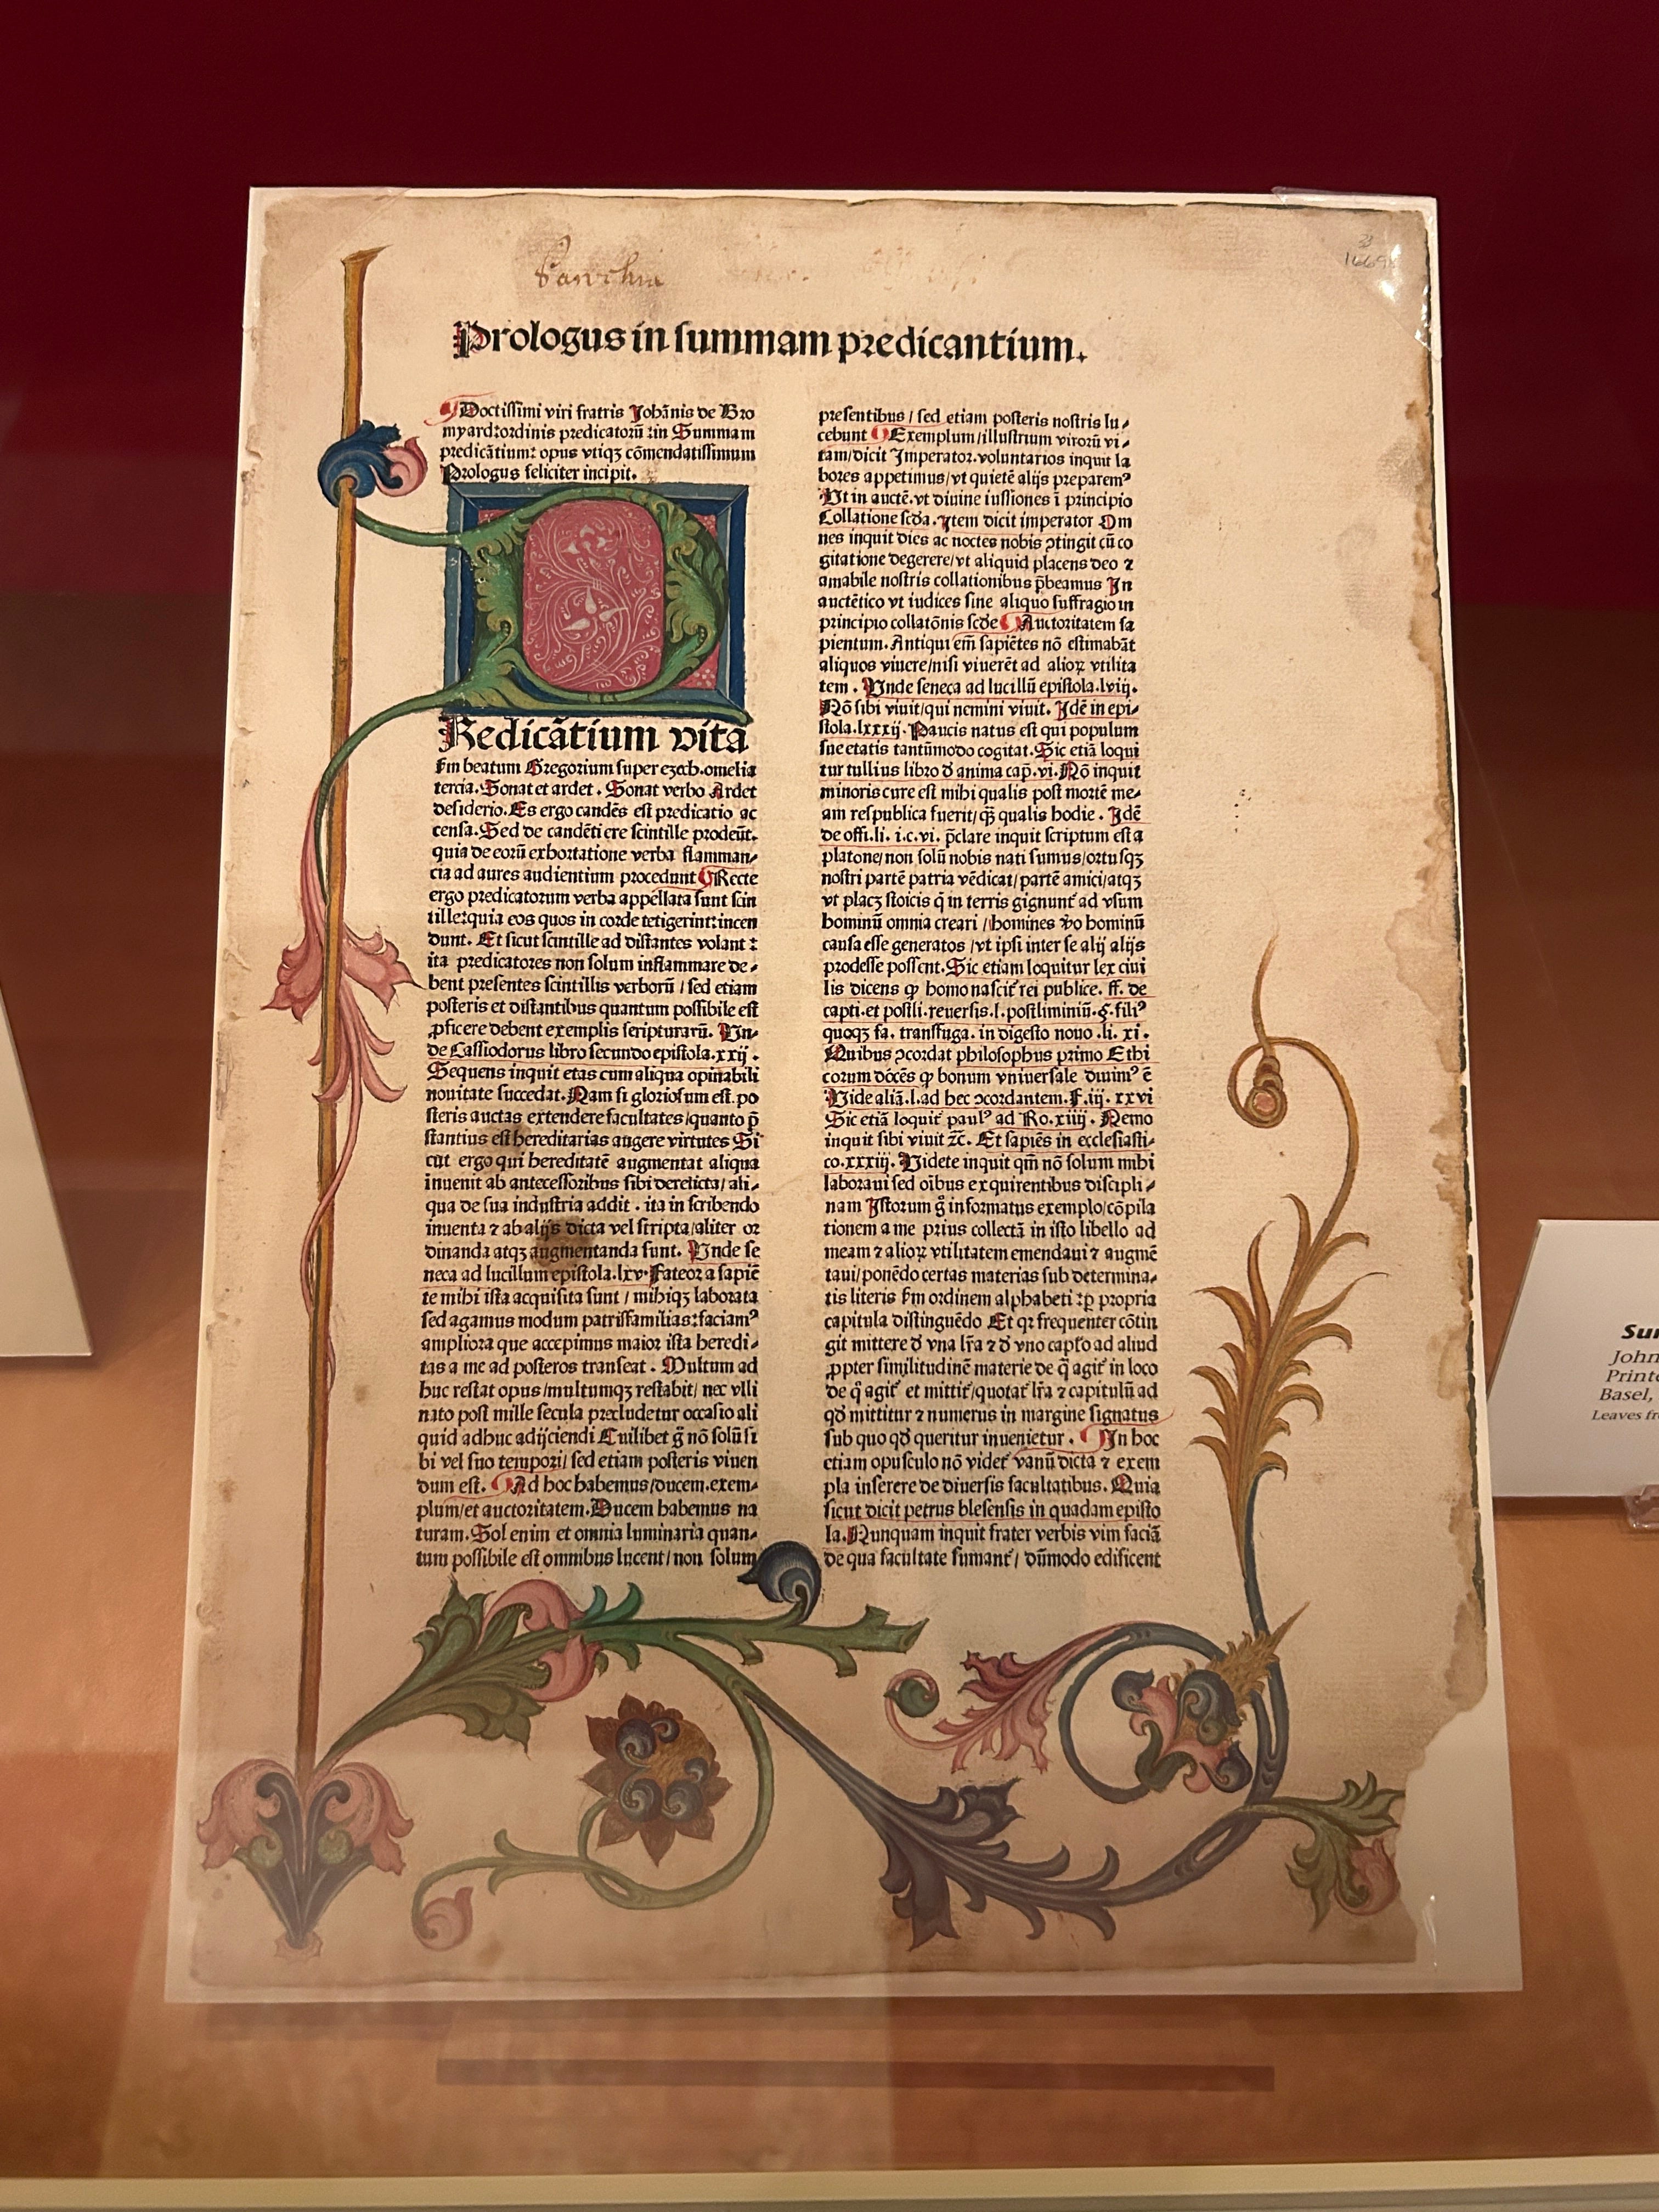 Prologus in summam predicantium.
Doctissimi viri fratris Johānis de Bro
myard:ordinis predicatorū :in Summam
predicātium: opus vtiqȝ cōmendatissimum
Prologus feliciter incipit.
P
Redicātium vita
ẜm beatum Gregorium super ezech. omelia
tercia. Sonat et ardet. Sonat verbo Ardet
desiderio. Es ergo candēs est predicatio ac
censa. Sed de candēti ere scintille prodeūt.
quia de eorū exhortatione verba flamman⸗
cia ad aures audientium procedunt Recte
ergo predicatorum verba appellata sunt scin
tille:quia eos quos in corde tetigerint:incen
dunt. Et sicut scintille ad distantes volant :
ita predicatores non solum inflammare de⸗
bent presentes scintillis verborū / sed etiam
posteris et distantibus quantum possibile est
ꝓficere debent exemplis scripturarū. Vn⸗
de Cassiodorus libro secundo epistola.xxij.
Sequens inquit etas cum aliqua opinabili
nouitate succedat. Nam si gloriosum est. po
steris auctas extendere facultates/quanto p̄
stantius est hereditarias augere virtutes Si
cut ergo qui hereditatē augmentat aliqua
inuenit ab antecessoribus sibi derelicta/ ali⸗
qua de sua industria addit. ita in scribendo
inuenta ⁊ ab alijs dicta vel scripta/aliter or
dinanda atqȝ augmentanda sunt. Vnde se
neca ad lucillum epistola.lxv. Fateor a sapiē
te mihi ista acquisita sunt / mihiqȝ laborata
sed agamus modum patrisfamilias:faciamꝰ
ampliora que accepimus maior ista heredi⸗
tas a me ad posteros transeat. Multum ad
huc restat opus/multumqȝ restabit/ nec vlli
nato post mille secula precludetur occasio ali
quid adhuc adijciendi Cuilibet g̊ nō solū si
bi vel suo tempori/ sed etiam posteris viuen
dum est. Ad hoc habemus/ducem.exem⸗
plum/et auctoritatem. Ducem habemus na
turam. Sol enim et omnia luminaria quan⸗
tum possibile est omnibus lucent/ non solum
presentibus / sed etiam posteris nostris lu⸗
cebunt Exemplum/illustrium virorū vi⸗
tam/dicit Imperator.voluntarios inquit la
bores appetimus/vt quietē alijs preparemꝰ
Vt in auctē.vt diuine iussiones ī principio
Collatione scḋa. Item dicit imperator Om
nes inquit dies ac noctes nobis ꝯtingit cū co
gitatione degerere/vt aliquid placens deo ⁊
amabile nostris collationibus p̄beamus In
auctētico vt iudices sine aliquo suffragio in
principio collatōnis scḋe Auctoritatem sa
pientum. Antiqui em̄ sapiētes nō estimabāt
aliquos viuere/nisi viuerēt ad alioꝝ vtilita
tem. Vnde seneca ad lucillū epistola.lviij.
Nō sibi viuit/qui nemini viuit. Idē in epi⸗
stola.lxxxij. Paucis natus est qui populum
sue etatis tantūmodo cogitat. Sic etiā loqui
tur tullius libro ď anima cap̄.vi. Nō inquit
minoris cure est mihi qualis post mortē me⸗
am respublica fuerit/ qȝ̄ qualis hodie. Idē
de offi.li. i.c.vi. p̄clare inquit scriptum est a
platone/ non solū nobis nati sumus/ortusqȝ
nostri partē patria vēdicat/ partē amici/atqȝ
vt placȝ stoicis q̄ in terris gignunt̄ ad vsum
hominū omnia creari /homines v̊o hominū
causa esse generatos /vt ipsi inter se alij alijs
prodesse possent. Sic etiam loquitur lex ciui
lis dicens ꝙ homo nascit̄ rei publice. ff. de
capti.et postli.reuersis.l.postliminiū.§.filiꝰ
quoqȝ fa. transfuga. in digesto nouo .li. xi.
Quibus ꝯcordat philosophus primo Ethi
corum docēs ꝙ bonum vniuersale diuinꝰ ē
Vide aliā.l.ad hec ꝯcordantem. F.iij. xxvi
Sic etiā loquit̄ paulꝰ ad Ro.xiiij. Nemo
inquit sibi viuit ⁊c̄. Et sapiēs in ecclesiasti⸗
co.xxxiij. Videte inquit qm̄ nō solum mihi
laboraui sed oībus exquirentibus discipli⸗
nam Istorum g̊ informatus exemplo/cōpila
tionem a me prius collectā in isto libello ad
meam ⁊ alioꝝ vtilitatem emendaui ⁊ augmē
taui/ponēdo certas materias sub determina⸗
tis literis ẜm ordinem alphabeti :ꝑ propria
capitula distinguēdo Et qꝛ frequenter cōtin
git mittere ď vna lr̄a ⁊ ď vno capło ad aliud
ꝓpter similitudinē materie de q̄ agit̄ in loco
de q̄ agit̄ et mittit̄/quotat̄ lr̄a ⁊ capitulū ad
qḋ mittitur ⁊ numerus in margine signatus
sub quo qḋ queritur inuenietur. In hoc
etiam opusculo nō videt̄ vanū dicta ⁊ exem
pla inserere de diuersis facultatibus. Quia
sicut dicit petrus blesensis in quadam episto
la. Nunquam inquit frater verbis vim faciā
de qua facultate sumant̄/ dūmodo edificent
John
Basel,